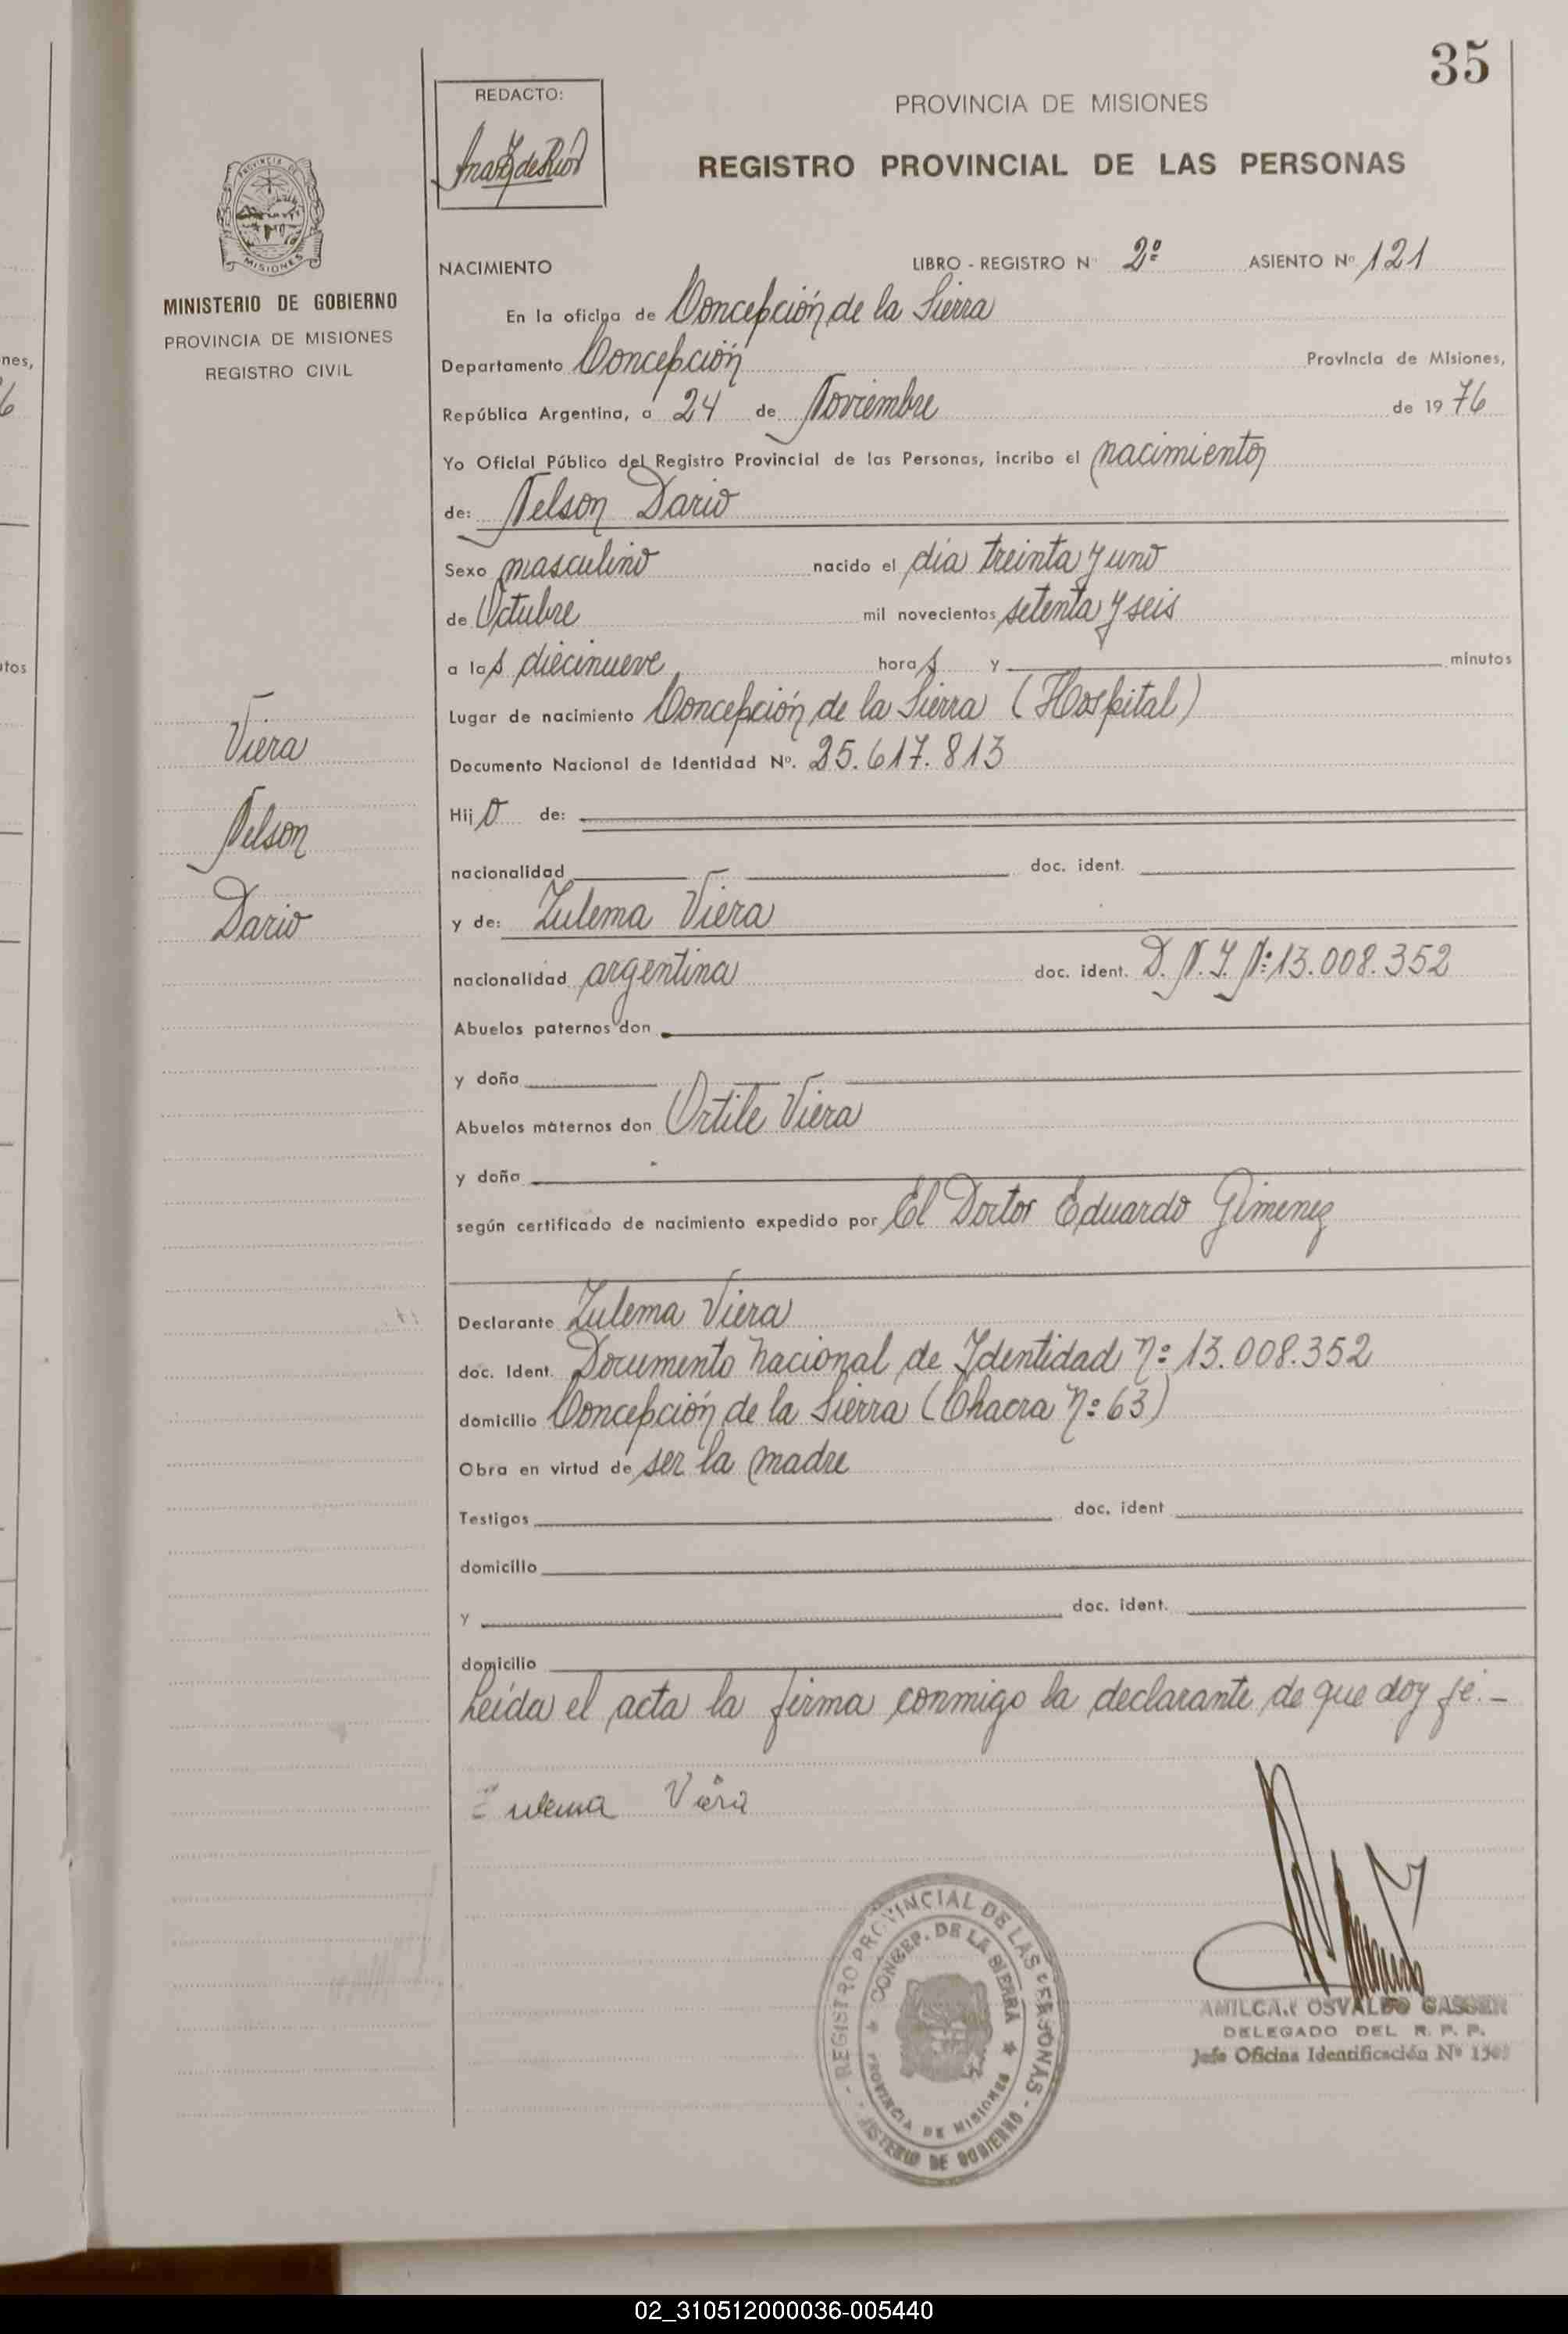 35
REDACTO:
PROVINCIA DE MISIONES
REGISTRO PROVINCIAL DE LAS PERSONAS
PROVINCIA DE
MISIONES
MINISTERIO DE GOBIERNO
PROVINCIA DE MISIONES
REGISTRO CIVIL
NACIMIENTO LIBRO - REGISTRO Nº 2º ASIENTO Nº 121
En la oficina de Concepción de la Sierra
Departamento Concepción Provincia de Misiones,
República Argentina, a 24 de Noviembre de 1976
Yo Oficial Público del Registro Provincial de las Personas, incribo el nacimiento
de: Nelson Dario
Sexo masculino nacido el día treinta y uno
de Octubre mil novecientos setenta y seis
a las diecinueve horas y minutos
Lugar de nacimiento Concepción de la Sierra (Hospital)
Documento Nacional de Identidad Nº. 25.617.813
Hijo de:
nacionalidad doc. ident.
y de: Zulema Viera
nacionalidad argentina doc. ident. D.N.I Nº 13.008.352
Abuelos paternos don
y doña
Abuelos maternos don Ortile Viera
y doña
según certificado de nacimiento expedido por El Doctor Eduardo Gimenez
Declarante Zulema Viera
doc. Ident. Documento Nacional de Identidad Nº 13.008.352
domicilio Concepción de la Sierra (Chacra Nº 63)
Obra en virtud de ser la madre
Testigos doc. ident
domicilio
y doc. ident.
domicilio
Leída el acta la firma conmigo la declarante de que doy fé.-
Viera
Nelson
Dario
Zulema Viera
REGISTRO PROVINCIAL DE LAS PERSONAS
CONCEP. DE LA SIERRA
PROVINCIA DE MISIONES
DE GOBIERNO
AMILCAR OSVALDO GASSEN
DELEGADO DEL R. P. P.
Jefe Oficina Identificación Nº
nes,
6
utos
02_310512000036-005440